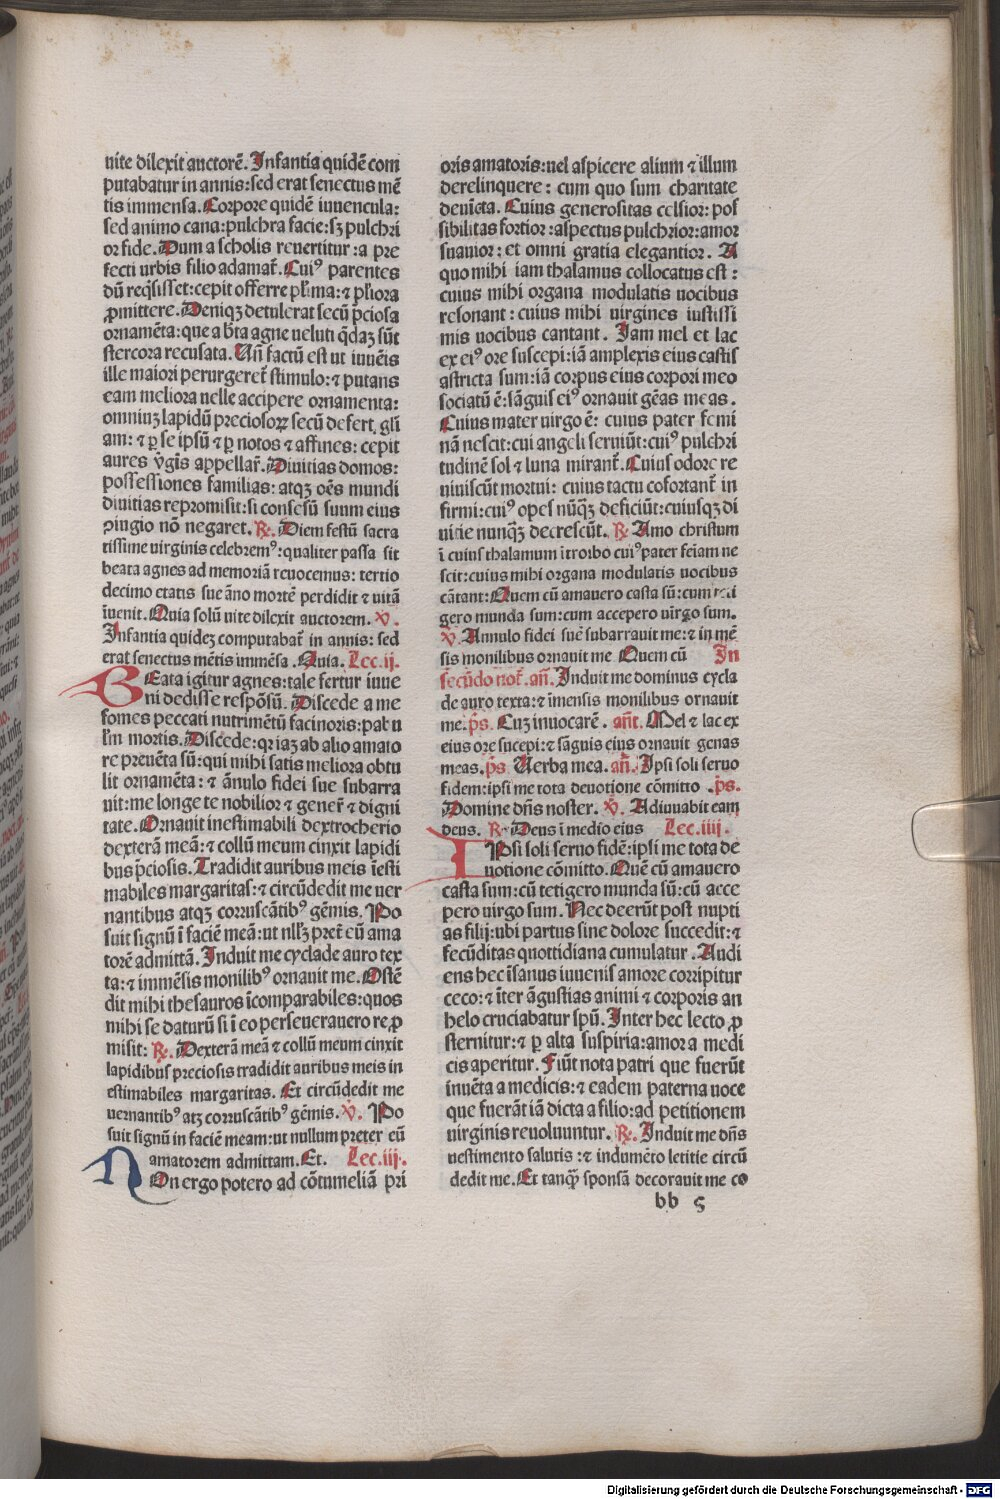 uite dilexit auctorē. Infantia quidē com
putabatur in annis: sed erat senectus mē
tis immensa. Corpore quidē iuuencula:
sed animo cana: pulchra facie: sꝫ pulchri
or fide. Dum a scholis reuertitur: a pre
fecti urbis filio adamat̄. Cuiꝰ parentes
dū reqsisset: cepit offerre pl̄ima: ⁊ pl̄iora
ꝓmittere. Deniqꝫ detulerat secū p̄ciosa
ornamēta: que a bt̄a agne ueluti q̄daꝫ sūt
stercora recusata. Un̄ factū est ut iuuēis
ille maiori perurgeret̄ stimulo: ⁊ putans
eam meliora uelle accipere ornamenta:
omniuꝫ lapidū preciosoꝝ secū defert gl̄i
am: ⁊ ꝑ se ipsū ⁊ ꝑ notos ⁊ affines: cepit
aures v̄gīs appellar̄. Diuitias domos:
possessiones familias: atqꝫ oēs mundi
diuitias repromisit: si consēsū suum eius
ↄiugio nō negaret. ℟. Diem festū sacra
tissime uirginis celebremꝰ: qualiter passa sit
beata agnes ad memoriā reuocemus: tertio
decimo etatis sue āno mortē perdidit ⁊ uitā
īuenit. Quia solū uite dilexit auctorem. v̄.
Infantia quideꝫ computabat̄ in annis: sed
erat senectus mētis immēsa. Quia. Lec. ij.
BEata igitur agnes: tale fertur iuue
ni dedisse respōsū. Discede a me
fomes peccati nutrimētū facinoris: pabu
lm̄ mortis. Discede: qr iaꝫ ab alio amato
re preuēta sū: qui mihi satis meliora obtu
lit ornamēta: ⁊ ānulo fidei sue subarra
uit: me longe te nobilior ⁊ gener̄ ⁊ digni
tate. Ornauit inestimabili dextrocherio
dexterā meā: ⁊ collū meum cinxit lapidi
bus p̄ciosis. Tradidit auribus meis īesti
mabiles margaritas: ⁊ circūdedit me uer
nantibus atqꝫ corruscātibꝰ gēmis. Po
suit signū ī faciē meā: ut nllꝫ pret̄ eū ama
torē admittā. Induit me cyclade auro tex
ta: ⁊ immēsis monilibꝰ ornauit me. Ostē
dit mihi thesauros īcomparabiles: quos
mihi se daturū si ī eo perseuerauero re ꝓ
misit: ℟. Dexterā meā ⁊ collū meum cinxit
lapidibus preciosis tradidit auribus meis in
estimabiles margaritas. Et circūdedit me
uernantibꝰ atꝫ corruscātibꝰ gēmis. v̄. Po
suit signū in faciē meam: ut nullum preter eū
amatorem admittam. Et. Lec. iij.
NOn ergo potero ad cōtumeliā pri
oris amatoris: uel aspicere alium ⁊ illum
derelinquere: cum quo sum charitate
deuīcta. Cuius generositas celsior: pos
sibilitas fortior: aspectus pulchrior: amor
suauior: et omni gratia elegantior. A
quo mihi iam thalamus collocatus est:
cuius mihi organa modulatis uocibus
resonant: cuius mihi uirgines iustissi
mis uocibus cantant. Iam mel et lac
ex eiꝰ ore suscepi: iā amplexis eius castis
astricta sum: iā corpus eius corpori meo
sociatū ē: sāguis eiꝰ ornauit gēas meas.
Cuius mater uirgo ē: cuius pater femi
nā nescit: cui angeli seruiūt: cuiꝰ pulchri
tudinē sol ⁊ luna mirant̄. Cuius odore re
uiuiscūt mortui: cuius tactu cōfortant̄ in
firmi: cuiꝰ opes nūqꝫ deficiūt: cuiusqꝫ di
uitie nunqꝫ decrescūt. ℟. Amo christum
ī cuius thalamum ītroibo cuiꝰ pater feīam ne
scit: cuius mihi organa modulatis uocibus
cātant: Quem cū amauero casta sū: cum teti
gero munda sum: cum accepero uirgo sum.
v̄. Annulo fidei sue subarrauit me: ⁊ in mē
sis monilibus ornauit me Quem cū In
secūdo noct̄. an̄. Induit me dominus cycla
de auro texta: ⁊ īmensis monilibus ornauit
me. p̄s. Cuꝫ inuocarē. an̄t. Mel ⁊ lac ex
eius ore sucepi: ⁊ sāguis eius ornauit genas
meas. p̄s Uerba mea. an̄. Ipsi soli seruo
fidem: ipsi me tota deuotione cōmitto. p̄s.
Domine dn̄s noster. v̄. Adiuuabit eam
deus. ℟. Deus ī medio eius Lec. iiij.
IPsi soli seruo fidē: ipsi me tota de
uotione cōmitto. Quē cū amauero
casta sum: cū tetigero munda sū: cū acce
pero uirgo sum. Nec deerūt post nupti
as filij: ubi partus sine dolore succedit: ⁊
fecūditas quottidiana cumulatur. Audi
ens hec īsanus iuuenis amore corripitur
ceco: ⁊ īter āgustias animi ⁊ corporis an
helo cruciabatur spū. Inter hec lecto ꝓ
sternitur: ⁊ ꝑ alta suspiria: amor a medi
cis aperitur. Fiūt nota patri que fuerūt
īnuēta a medicis: ⁊ eadem paterna uoce
que fuerāt iā dicta a filio: ad petitionem
uirginis reuoluuntur. ℟. Induit me dn̄s
uestimento salutis: ⁊ indumēto letitie circū
dedit me. Et tanqꝫ sponsā decorauit me co
bb 5
Digitalisierung gefördert durch die Deutsche Forschungsgemeinschaft - DFG